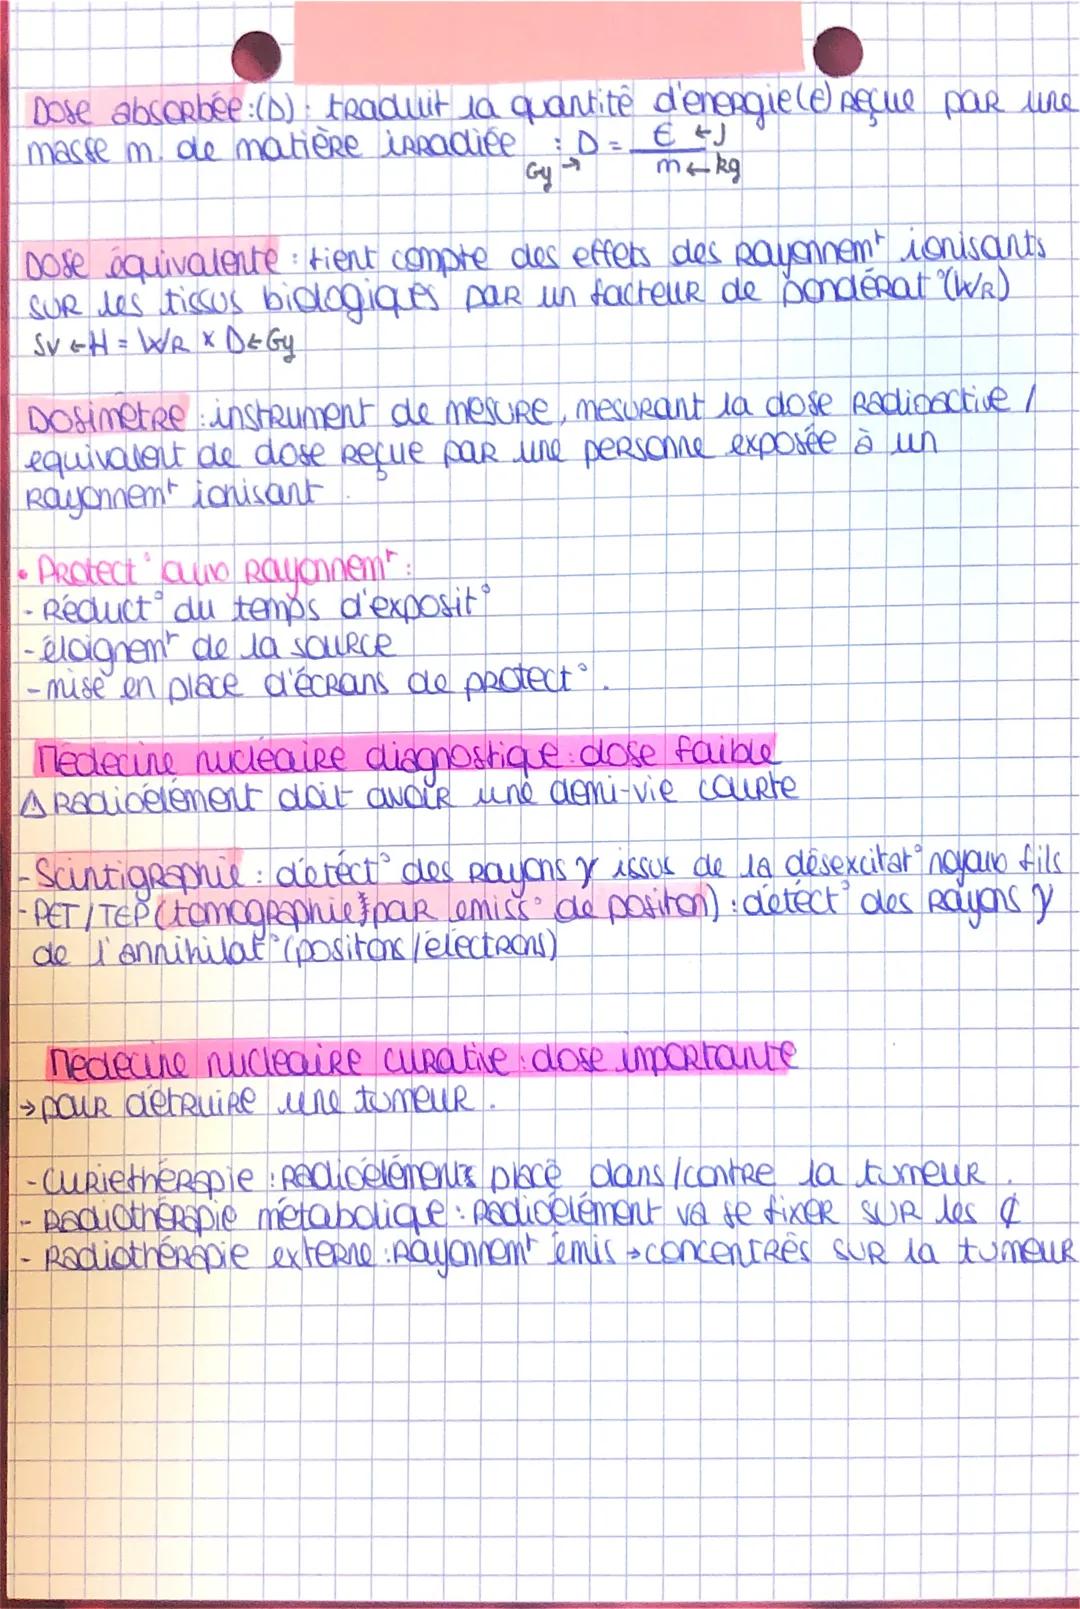 Dose absorbée : (D) : traduit la quantité d'énergie (E) reçue par une
masse m. de matière irradiée : D = E ← J
Gy → m ← kg
Dose équivalente : tient compte des effets des rayonnemt ionisants
sur les tissus biologiques par un facteur de pondérat° (WR)
Sv ← H = WR × D ← Gy
Dosimètre : instrument de mesure, mesurant la dose radioactive /
equivalent de dose reçue par une personne exposée à un
rayonnemt ionisant.
• Protect° aux rayonnemt :
- Réduct° du temps d'exposit°
- éloignemt de la source
- mise en place d'écrans de protect°.
Médecine nucléaire diagnostique : dose faible
⚠ Radioélément doit avoir une demi-vie courte
- Scintigraphie : détect° des rayons γ issus de la désexcitat° noyaux fils
- PET / TEP (tomographie par émiss° de positon) : détect° des rayons γ
de l'annihilat° (positons / électrons)
Médecine nucléaire curative : dose importante
→ pour détruire une tumeur.
- Curiethérapie : Radioéléments placé dans / contre la tumeur.
- Radiothérapie métabolique : radioélément va se fixer sur les ₵
- Radiothérapie externe : Rayonnemt émis → concentrés sur la tumeur